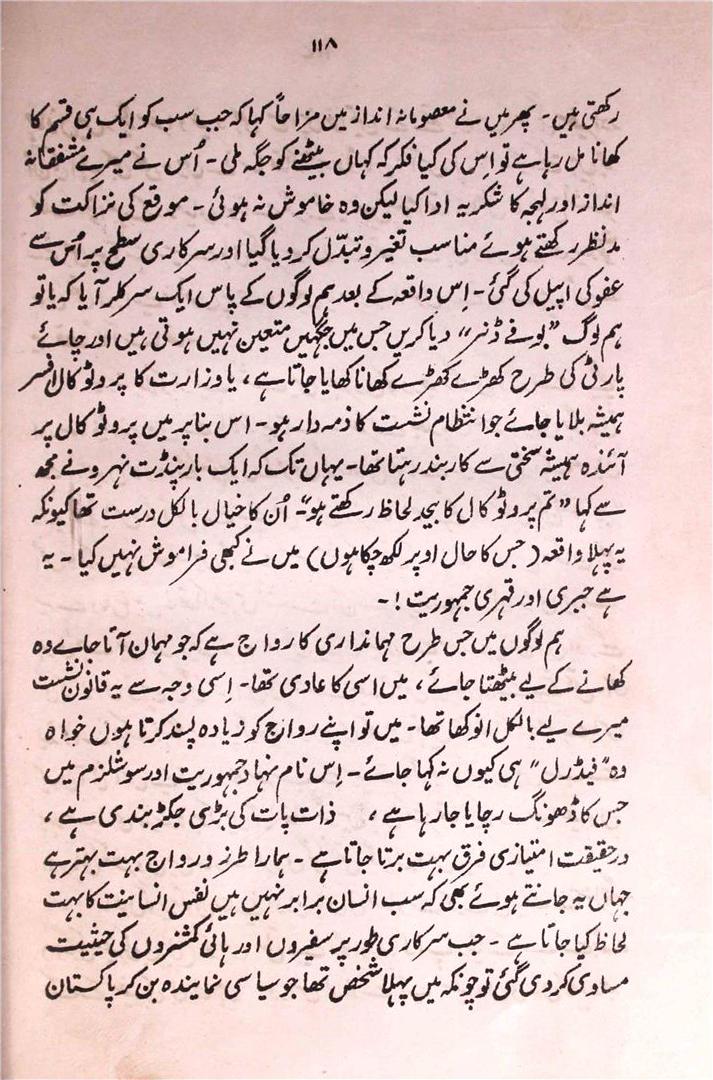 ۱۱۸
رکھتی ہیں۔ پھر میں نے معصومانہ انداز میں مزاحاً کہا کہ جب سب کو ایک ہی قسم کا
کھانا مل رہا ہے تو اِس کی کیا فکر کہ کہاں بیٹھنے کو جگہ ملی۔ اُس نے میرے مشفقانہ
انداز اور لہجہ کا شکریہ ادا کیا لیکن وہ خاموش نہ ہوئی۔ موقع کی نزاکت کو
مدنظر رکھتے ہوئے مناسب تغیر و تبدّل کر دیا گیا اور سرکاری سطح پر اُس سے
عفو کی اپیل کی گئی۔ اِس واقعہ کے بعد ہم لوگوں کے پاس ایک سرکلر آیا کہ یا تو
ہم لوگ ”بوفے ڈنر“ دیا کریں جس میں جگہیں متعین نہیں ہوتی ہیں اور چائے
پارٹی کی طرح کھڑے کھڑے کھانا کھایا جاتا ہے، یا وزارت کا پروٹوکال افسر
ہمیشہ بلایا جائے جو انتظام نشست کا ذمہ دار ہو۔ اس بنا پر میں پروٹوکال پر
آئندہ ہمیشہ سختی سے کاربند رہتا تھا۔ یہاں تک کہ ایک بار پنڈت نہرو نے مجھ
سے کہا ”تم پروٹوکال کا بیحد لحاظ رکھتے ہو“۔ اُن کا خیال بالکل درست تھا کیونکہ
یہ پہلا واقعہ (جس کا حال اوپر لکھ چکا ہوں) میں نے کبھی فراموش نہیں کیا۔ یہ
ہے جبری اور قہری جمہوریت!۔
ہم لوگوں میں جس طرح مہمانداری کا رواج ہے کہ جو مہمان آتا جاے وہ
کھانے کے لیے بیٹھتا جائے، میں اسی کا عادی تھا۔ اِسی وجہ سے یہ قانون نشست
میرے لیے بالکل انوکھا تھا۔ میں تو اپنے رواج کو زیادہ پسند کرتا ہوں خواہ
وہ ”فیڈرل“ ہی کیوں نہ کہا جائے۔ اِس نام نہاد جمہوریت اور سوشلزم میں
جس کا ڈھونگ رچایا جا رہا ہے، ذات پات کی بڑی جکڑ بندی ہے،
درحقیقت امتیازی فرق بہت برتا جاتا ہے۔ ہمارا طرز و رواج بہت بہتر ہے
جہاں یہ جانتے ہوئے بھی کہ سب انسان برابر نہیں ہیں نفس انسانیت کا بہت
لحاظ کیا جاتا ہے۔ جب سرکاری طور پر سفیروں اور ہائی کمشنروں کی حیثیت
مساوی کر دی گئی تو چونکہ میں پہلا شخص تھا جو سیاسی نمایندہ بن کر پاکستان